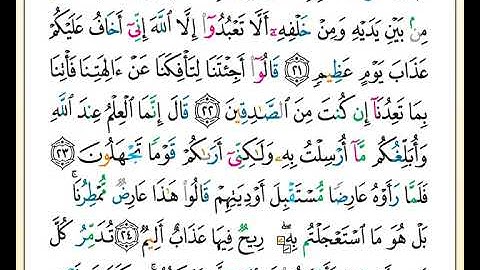 مِنۢ بَيْنِ يَدَيْهِ وَمِنْ خَلْفِهِۦٓ أَلَّا تَعْبُدُوٓا۟ إِلَّا ٱللَّهَ إِنِّىٓ أَخَافُ عَلَيْكُمْ
عَذَابَ يَوْمٍ عَظِيمٍ ٢١ قَالُوٓا۟ أَجِئْتَنَا لِتَأْفِكَنَا عَنْ ءَالِهَتِنَا فَأْتِنَا
بِمَا تَعِدُنَآ إِن كُنتَ مِنَ ٱلصَّـٰدِقِينَ ٢٢ قَالَ إِنَّمَا ٱلْعِلْمُ عِندَ ٱللَّهِ
وَأُبَلِّغُكُم مَّآ أُرْسِلْتُ بِهِۦ وَلَـٰكِنِّىٓ أَرَىٰكُمْ قَوْمًا تَجْهَلُونَ ٢٣
فَلَمَّا رَأَوْهُ عَارِضًا مُّسْتَقْبِلَ أَوْدِيَتِهِمْ قَالُوا۟ هَـٰذَا عَارِضٌ مُّمْطِرُنَا ۚ
بَلْ هُوَ مَا ٱسْتَعْجَلْتُم بِهِۦ ۖ رِيحٌ فِيهَا عَذَابٌ أَلِيمٌ ٢٤ تُدَمِّرُ كُلَّ